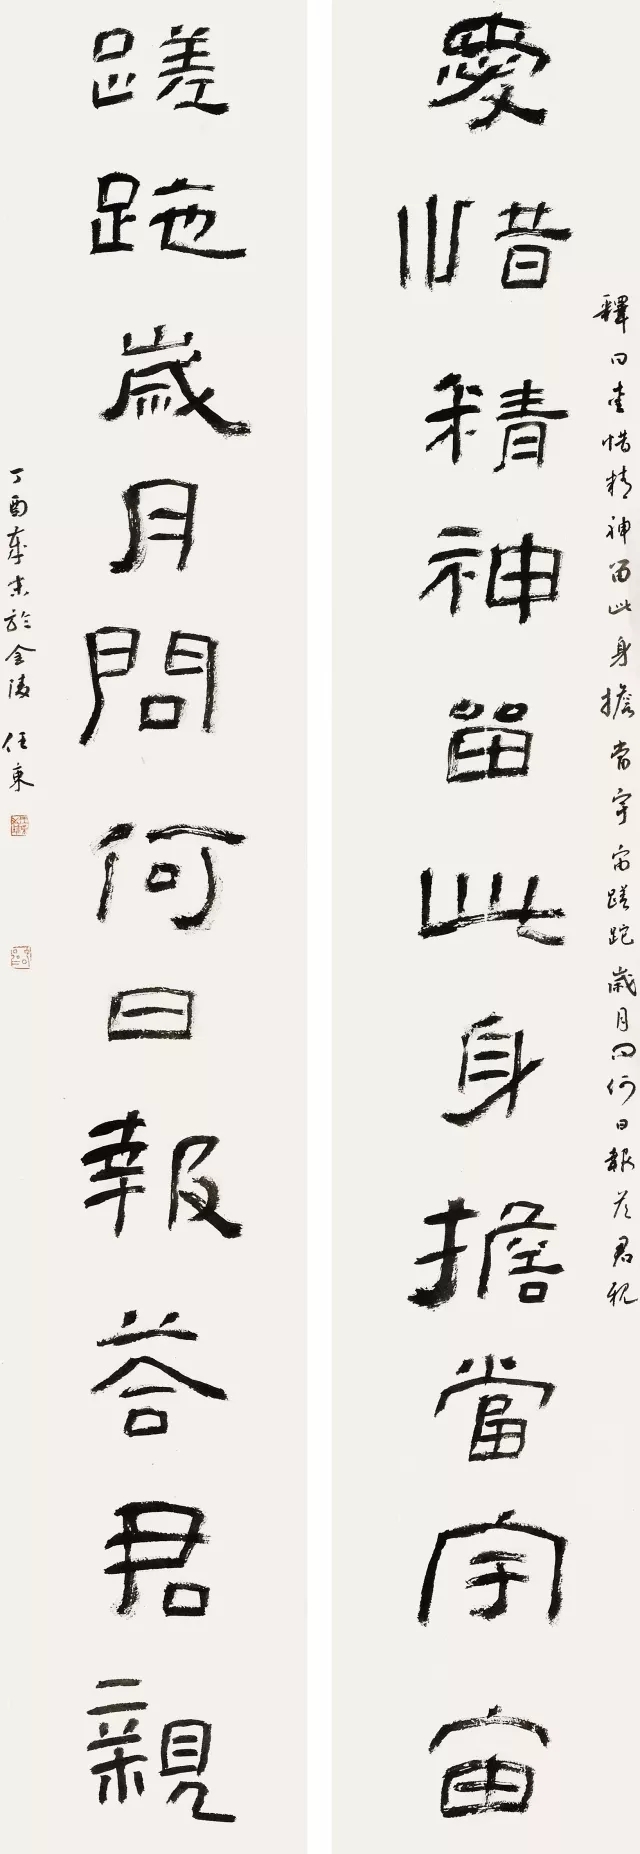 釋曰愛惜精神留此身擔當宇宙蹉跎歲月問何日報答君親
愛惜精神留此身擔當宇宙
蹉跎歲月問何日報答君親
丁酉年末於金陵 任東